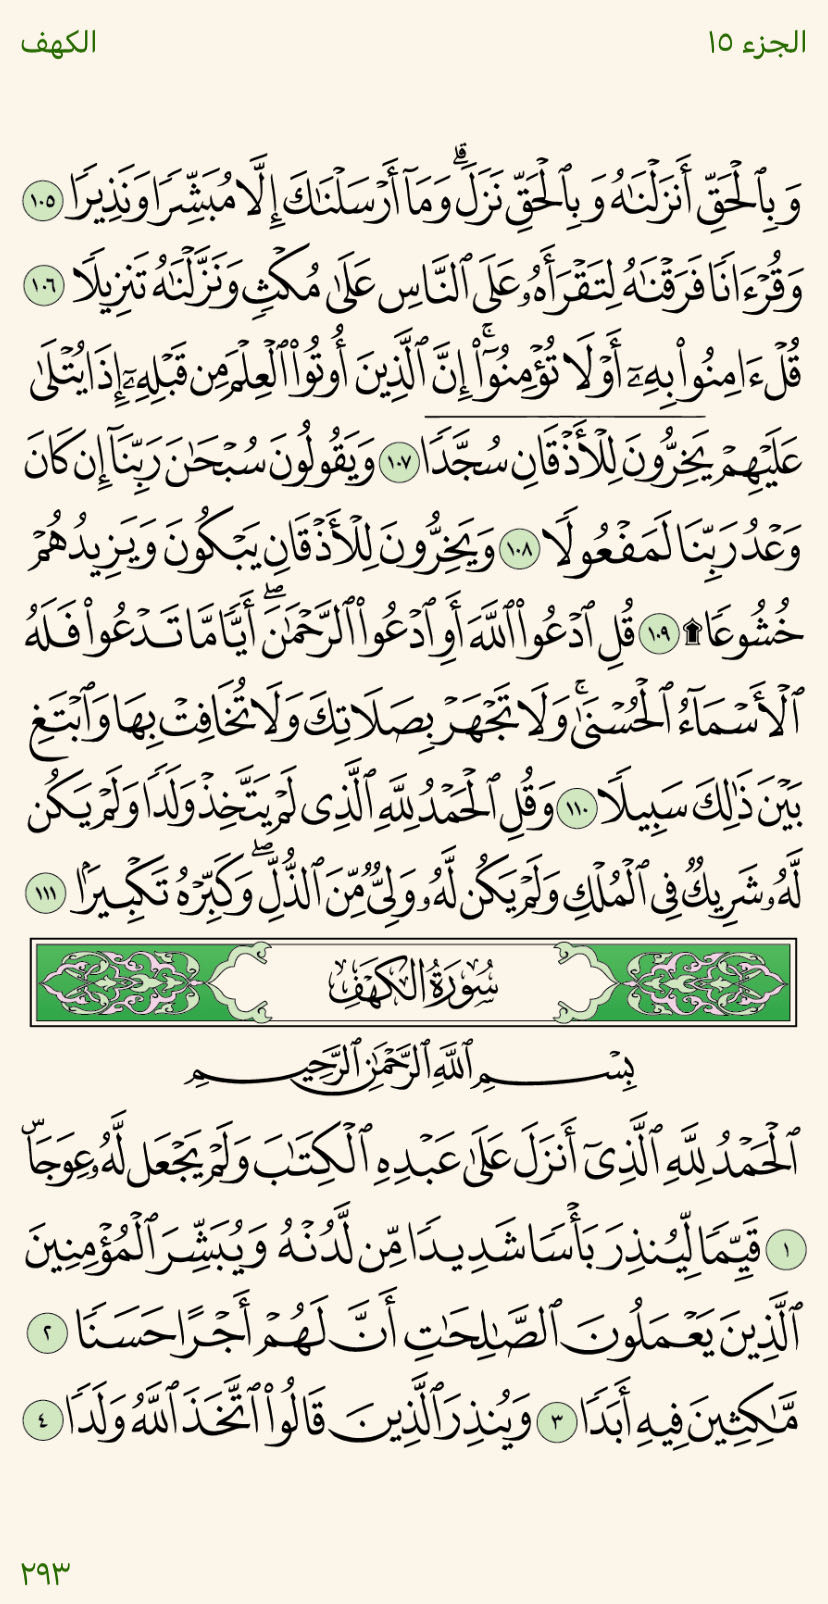 الجزء ١٥
الكهف
وَبِٱلْحَقِّ أَنزَلْنَـٰهُ وَبِٱلْحَقِّ نَزَلَ ۗ وَمَآ أَرْسَلْنَـٰكَ إِلَّا مُبَشِّرًا وَنَذِيرًا ١٠٥
وَقُرْءَانًا فَرَقْنَـٰهُ لِتَقْرَأَهُۥ عَلَى ٱلنَّاسِ عَلَىٰ مُكْثٍ وَنَزَّلْنَـٰهُ تَنزِيلًا ١٠٦
قُلْ ءَامِنُوا۟ بِهِۦٓ أَوْ لَا تُؤْمِنُوٓا۟ ۚ إِنَّ ٱلَّذِينَ أُوتُوا۟ ٱلْعِلْمَ مِن قَبْلِهِۦٓ إِذَا يُتْلَىٰ
عَلَيْهِمْ يَخِرُّونَ لِلْأَذْقَانِ سُجَّدًا ١٠٧ وَيَقُولُونَ سُبْحَـٰنَ رَبِّنَآ إِن كَانَ
وَعْدُ رَبِّنَا لَمَفْعُولًا ١٠٨ وَيَخِرُّونَ لِلْأَذْقَانِ يَبْكُونَ وَيَزِيدُهُمْ
خُشُوعًا ۩ ١٠٩ قُلِ ٱدْعُوا۟ ٱللَّهَ أَوِ ٱدْعُوا۟ ٱلرَّحْمَـٰنَ ۖ أَيًّا مَّا تَدْعُوا۟ فَلَهُ
ٱلْأَسْمَآءُ ٱلْحُسْنَىٰ ۚ وَلَا تَجْهَرْ بِصَلَاتِكَ وَلَا تُخَافِتْ بِهَا وَٱبْتَغِ
بَيْنَ ذَٰلِكَ سَبِيلًا ١١٠ وَقُلِ ٱلْحَمْدُ لِلَّهِ ٱلَّذِى لَمْ يَتَّخِذْ وَلَدًا وَلَمْ يَكُن
لَّهُۥ شَرِيكٌ فِى ٱلْمُلْكِ وَلَمْ يَكُن لَّهُۥ وَلِىٌّ مِّنَ ٱلذُّلِّ ۖ وَكَبِّرْهُ تَكْبِيرًۢا ١١١
سُورَةُ الكَهْفِ
بِسْمِ ٱللَّهِ ٱلرَّحْمَـٰنِ ٱلرَّحِيمِ
ٱلْحَمْدُ لِلَّهِ ٱلَّذِىٓ أَنزَلَ عَلَىٰ عَبْدِهِ ٱلْكِتَـٰبَ وَلَمْ يَجْعَل لَّهُۥ عِوَجَا ۜ
١ قَيِّمًا لِّيُنذِرَ بَأْسًا شَدِيدًا مِّن لَّدُنْهُ وَيُبَشِّرَ ٱلْمُؤْمِنِينَ
ٱلَّذِينَ يَعْمَلُونَ ٱلصَّـٰلِحَـٰتِ أَنَّ لَهُمْ أَجْرًا حَسَنًا ٢
مَّـٰكِثِينَ فِيهِ أَبَدًا ٣ وَيُنذِرَ ٱلَّذِينَ قَالُوا۟ ٱتَّخَذَ ٱللَّهُ وَلَدًا ٤
٢٩٣